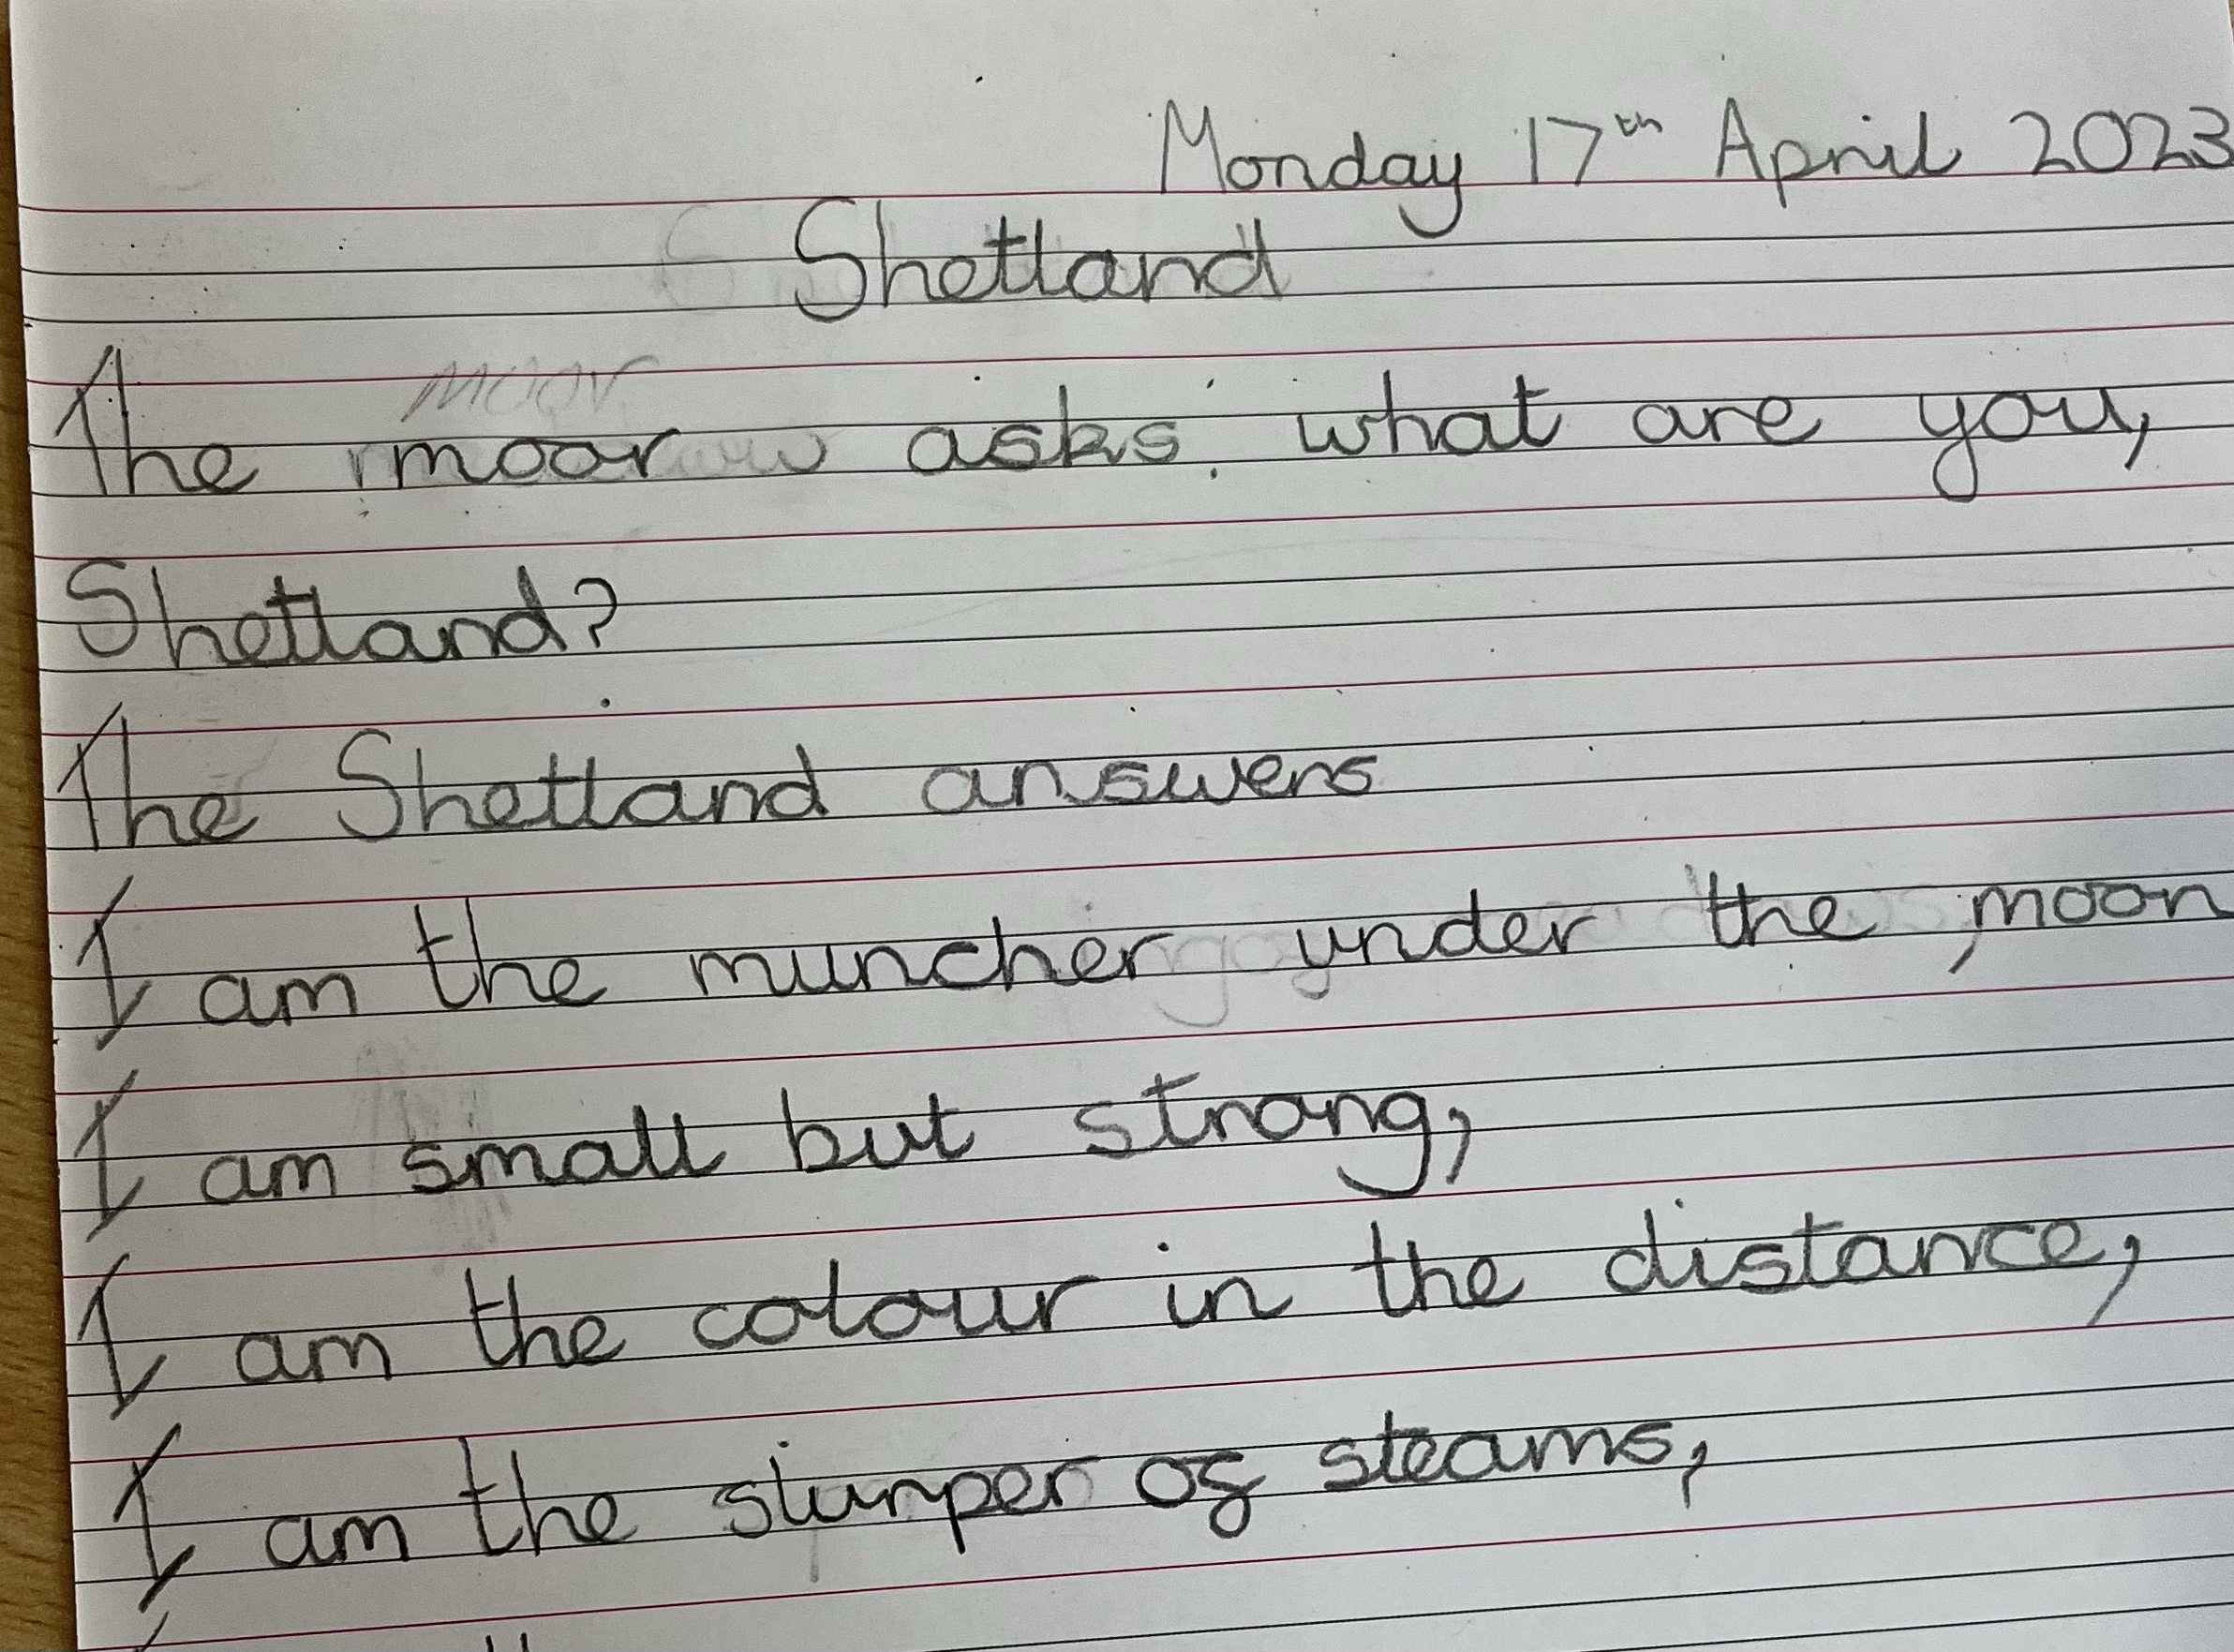 Monday 17th April 2023
Shetland
moor
The moor asks, what are you,
Shetland?
The Shetland answers
I am the muncher under the moon
I am small but strong,
I am the colour in the distance,
I am the slurper of steams,